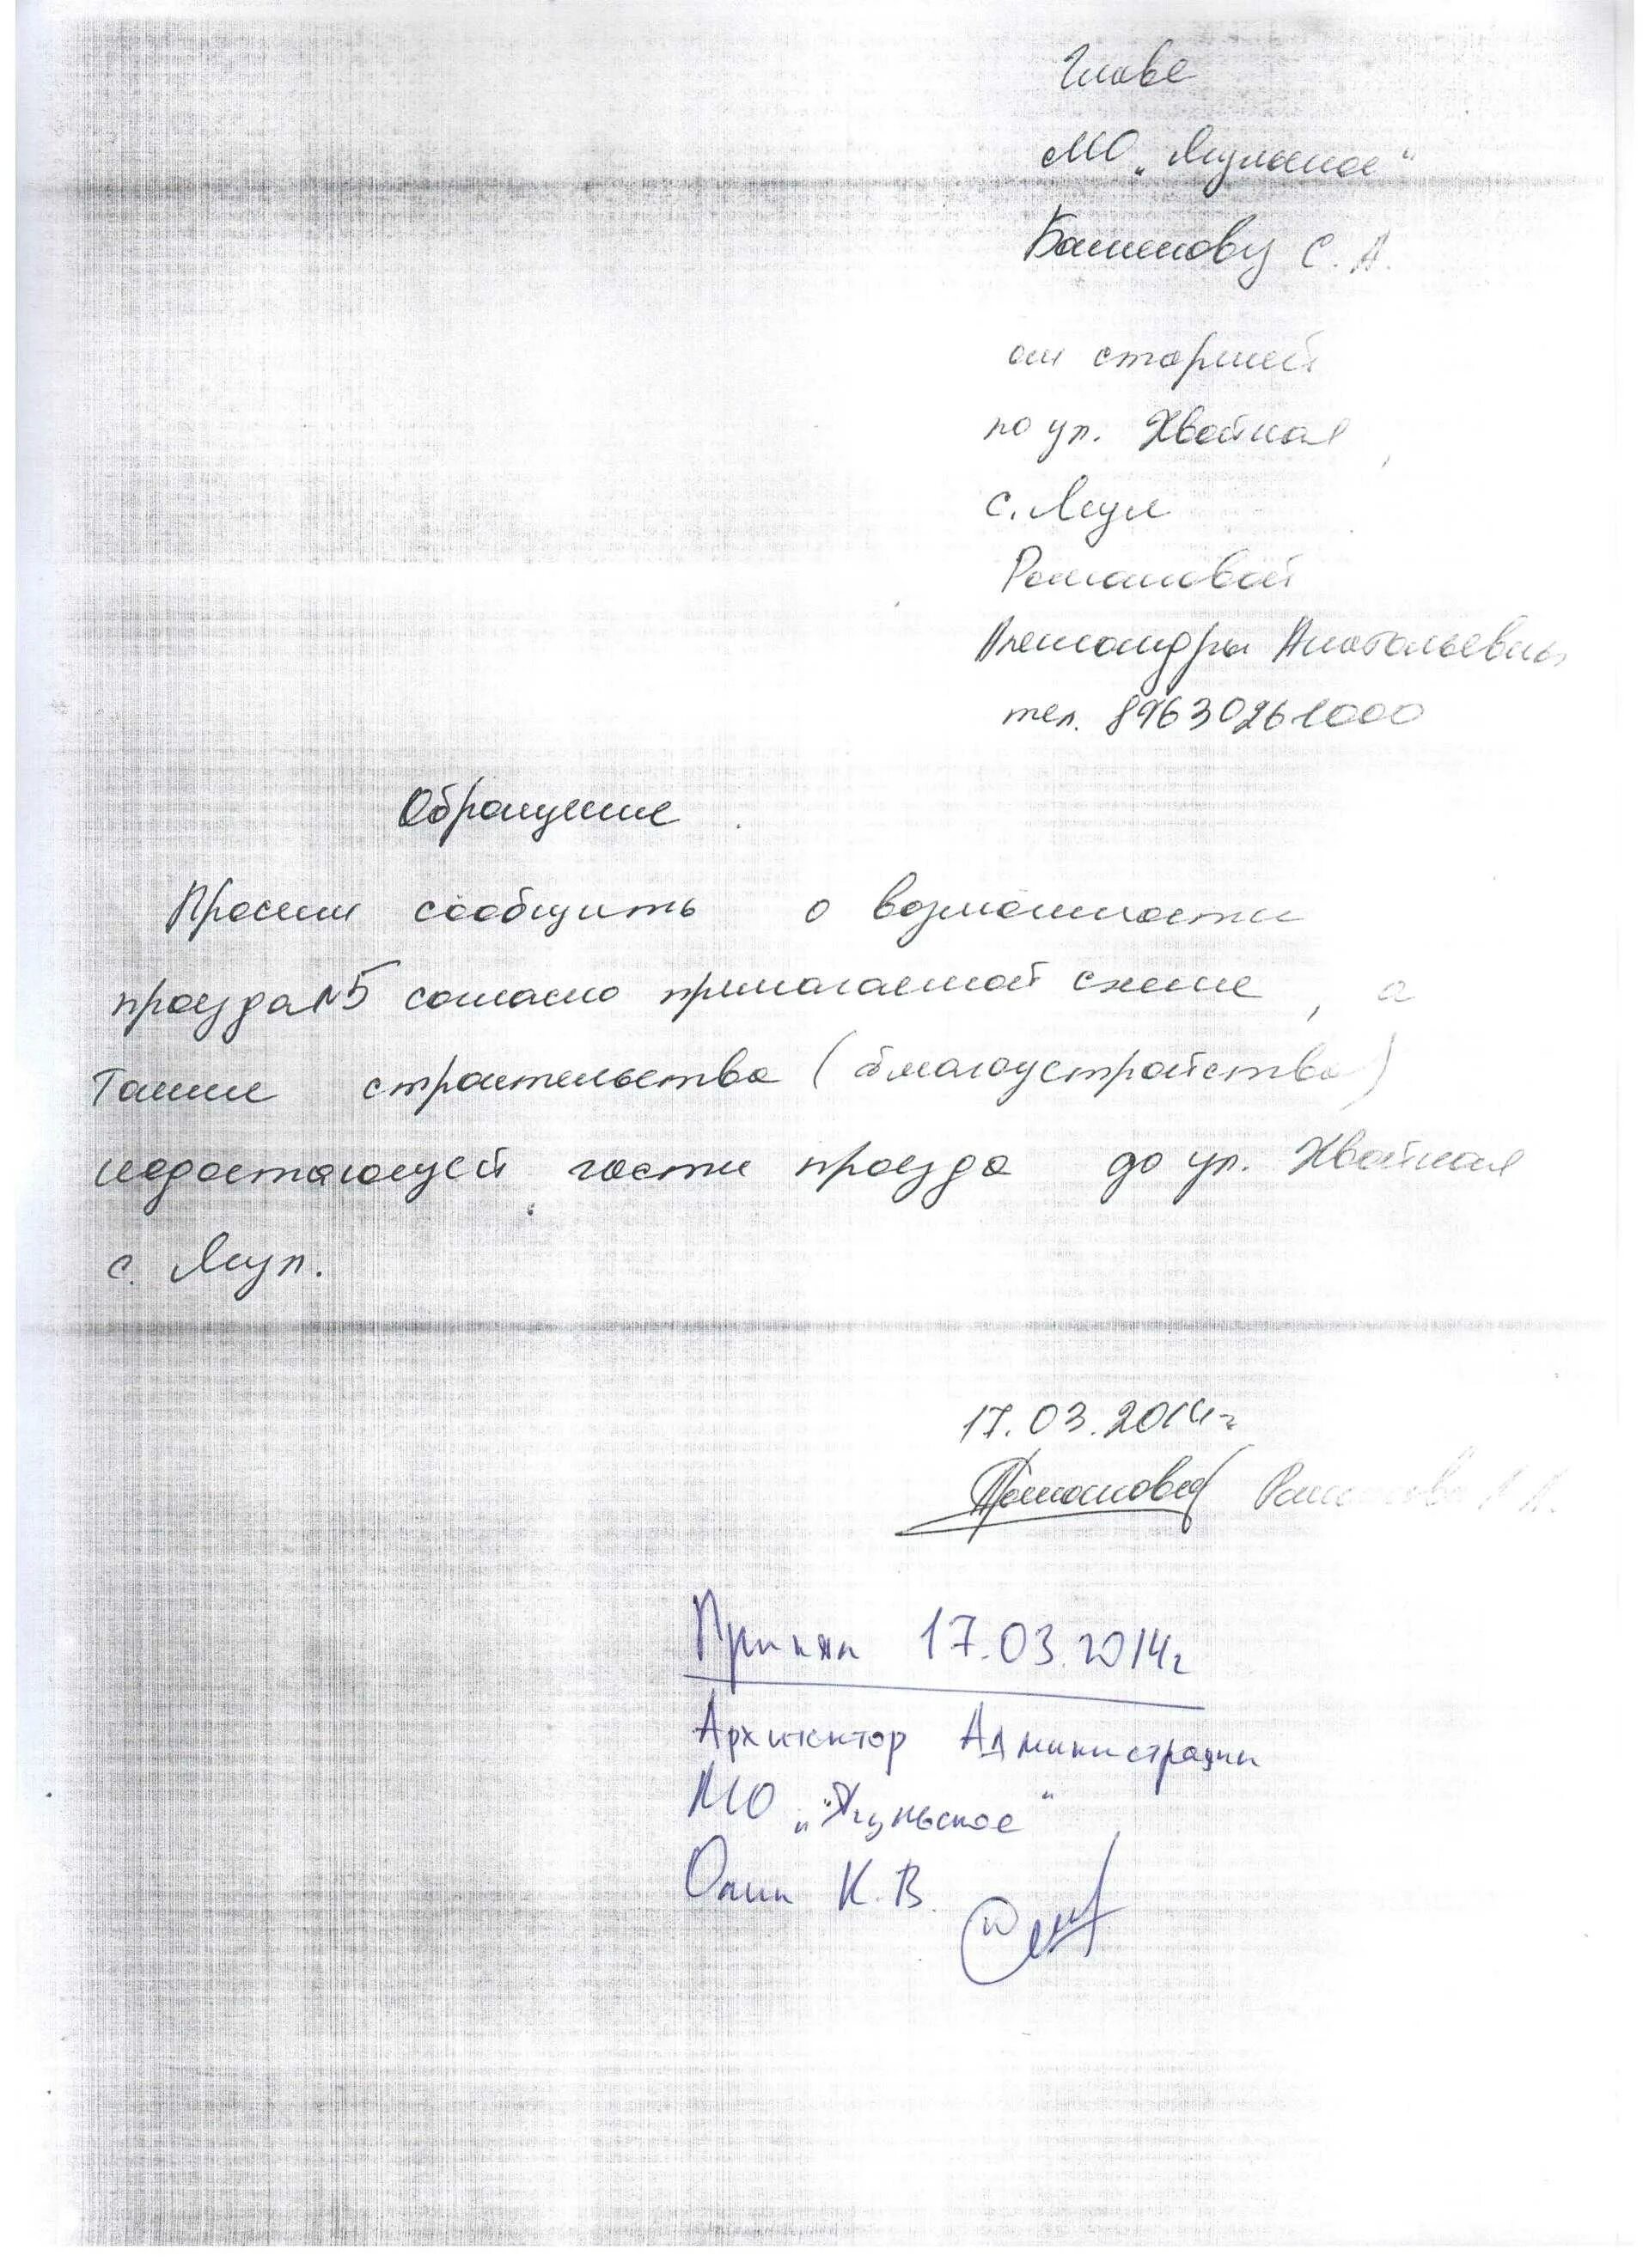 Главе
МО „Ягульское"
Башенову С. А.
от старшей
по ул. Хвойная,
с. Ягул
Романовой
Александры Анатольевны
тел. 89630261000
Обращение.
Просим сообщить о возможности
проезда №5 согласно прилагаемой схеме, а
также строительства (благоустройства)
недостающей части проезда до ул. Хвойная
с. Ягул.
17.03.2014г
Романова А.А.
Принял 17.03.2014г
Архитектор Администрации
МО „Ягульское"
К. В.